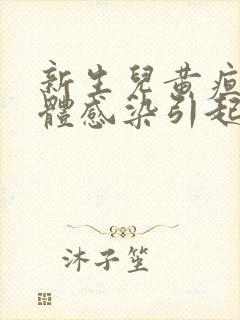 新生兒黃疸
體感染引起
沐子笙